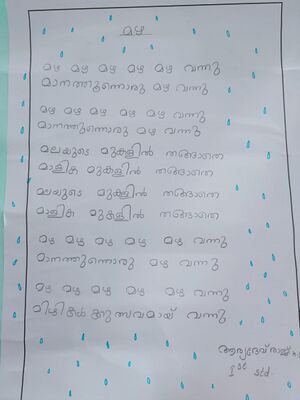 മഴ
മഴ മഴ മഴ മഴ മഴ വന്നു
മാനത്തൂന്നൊരു മഴ വന്നു
മഴ മഴ മഴ മഴ മഴ വന്നു
മാനത്തുന്നൊരു മഴ വന്നു
മലയുടെ മുകളിൽ തങ്ങാതെ
മാളിക മുകളിൽ തങ്ങാതെ
മലയുടെ മുകളിൽ തങ്ങാതെ
മാളിക മുകളിൽ തങ്ങാതെ
മഴ മഴ മഴ മഴ മഴ വന്നു
മാനത്തുന്നൊരു മഴ വന്നു
മഴ മഴ മഴ മഴ മഴ വന്നു
മിഴികൾക്കുത്സവമായ് വന്നു
ആര്യദേവ് രാജ്
1st std